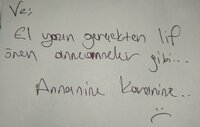 Ve;
El yazın gerçekten lif
ören anneanneler gibi...
Annanine Karenine...
:(